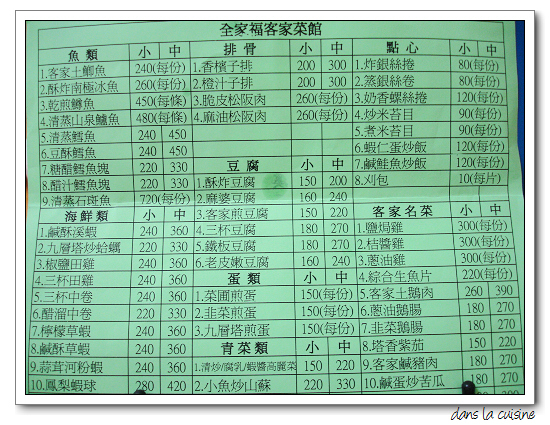 全家福客家菜館
魚類 小 中
1.客家土鯽魚 240(每份)
2.酥炸南極冰魚 260(每份)
3.乾煎鱒魚 450(每條)
4.清蒸山泉鱸魚 480(每條)
5.清蒸鱈魚 240 450
6.豆酥鱈魚 240 450
7.糖醋鱈魚塊 220 330
8.醋汁鱈魚塊 220 330
9.清蒸石斑魚 720(每份)
海鮮類 小 中
1.鹹酥溪蝦 240 360
2.九層塔炒蛤蠣 220 330
3.椒鹽田雞 240 360
4.三杯田雞 240 360
5.三杯中卷 240 360
6.醋溜中卷 220 330
7.檸檬草蝦 240 360
8.鹹酥草蝦 240 360
9.蒜茸河粉蝦 240 360
10.鳳梨蝦球 280 420
排骨 小 中
1.香檳子排 200 300
2.橙汁子排 200 300
3.脆皮松阪肉 260(每份)
4.麻油松阪肉 260(每份)
豆腐 小 中
1.酥炸豆腐 150 200
2.麻婆豆腐 160 240
3.客家煎豆腐 150 220
4.三杯豆腐 180 270
5.鐵板豆腐 180 270
6.老皮嫩豆腐 160 240
蛋類 小 中
1.菜圃煎蛋 150(每份)
2.韭菜煎蛋 150(每份)
3.九層塔煎蛋 150(每份)
青菜類 小 中
1.清炒/腐乳/蝦醬高麗菜 150 200
2.小魚炒山蘇 220 330
點心 小 中
1.炸銀絲捲 80(每份)
2.蒸銀絲卷 80(每份)
3.奶香螺絲捲 120(每份)
4.炒米苔目 90(每份)
5.煮米苔目 90(每份)
6.蝦仁蛋炒飯 120(每份)
7.鹹鮭魚炒飯 120(每份)
8.刈包 10(每片)
客家名菜 小 中
1.鹽焗雞 300(每份)
2.桔醬雞 300(每份)
3.蔥油雞 300(每份)
4.綜合生魚片 220(每份)
5.客家土鵝肉 260 390
6.蔥油鵝腸 180 270
7.韭菜鵝腸 180 270
8.塔香紫茄 150 220
9.客家鹹豬肉 180 270
10.鹹蛋炒苦瓜 180 270
dans la cuisine